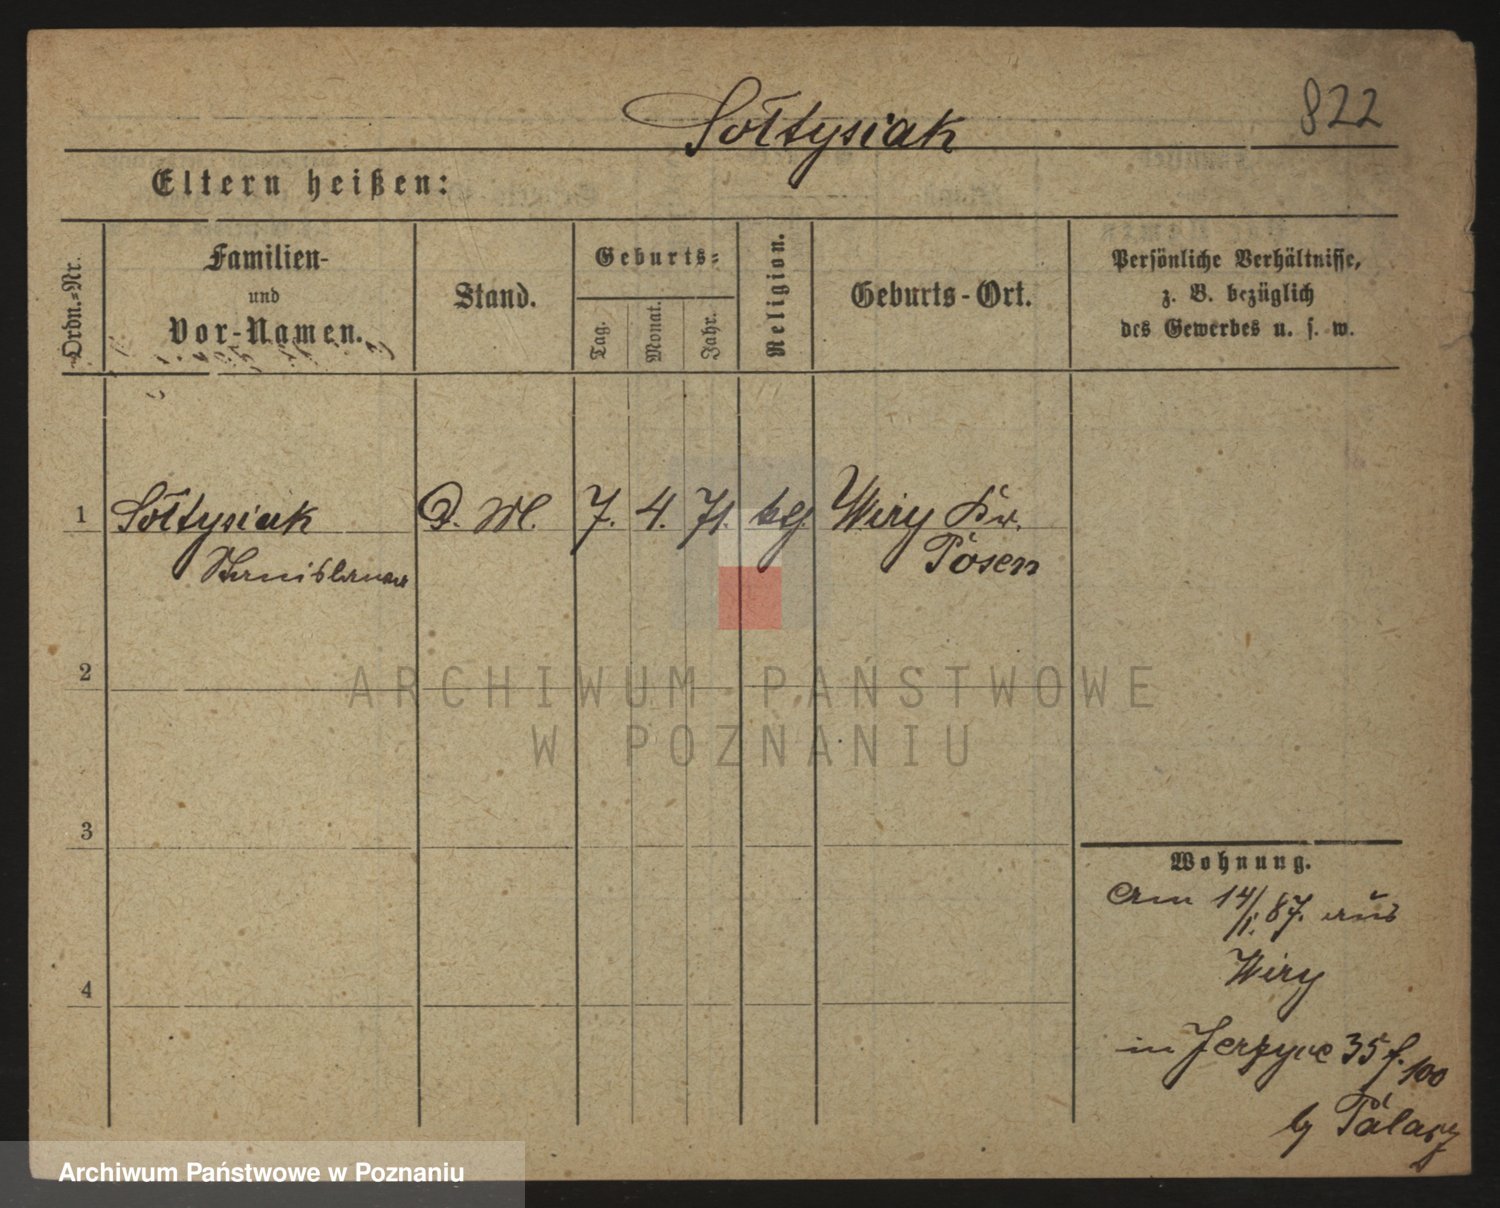 Sołtysiak
822
Eltern heißen:
Ordn.=Nr.
Familien-
und
Vor-Namen.
Stand.
Geburts=
Tag.
Monat.
Jahr.
Religion.
Geburts-Ort.
Persönliche Verhältnisse,
z. B. bezüglich
des Gewerbes u. s. w.
1 Sołtysiak D. M. 7. 4. 71. Wiry Kr.
Stanislawa Posen
ARCHIWUM PAŃSTWOWE
W POZNANIU
2
3
4
Wohnung.
Am 14/1. 87. aus
Wiry
in Jerzyce 35 f. 100
Archiwum Państwowe w Poznaniu